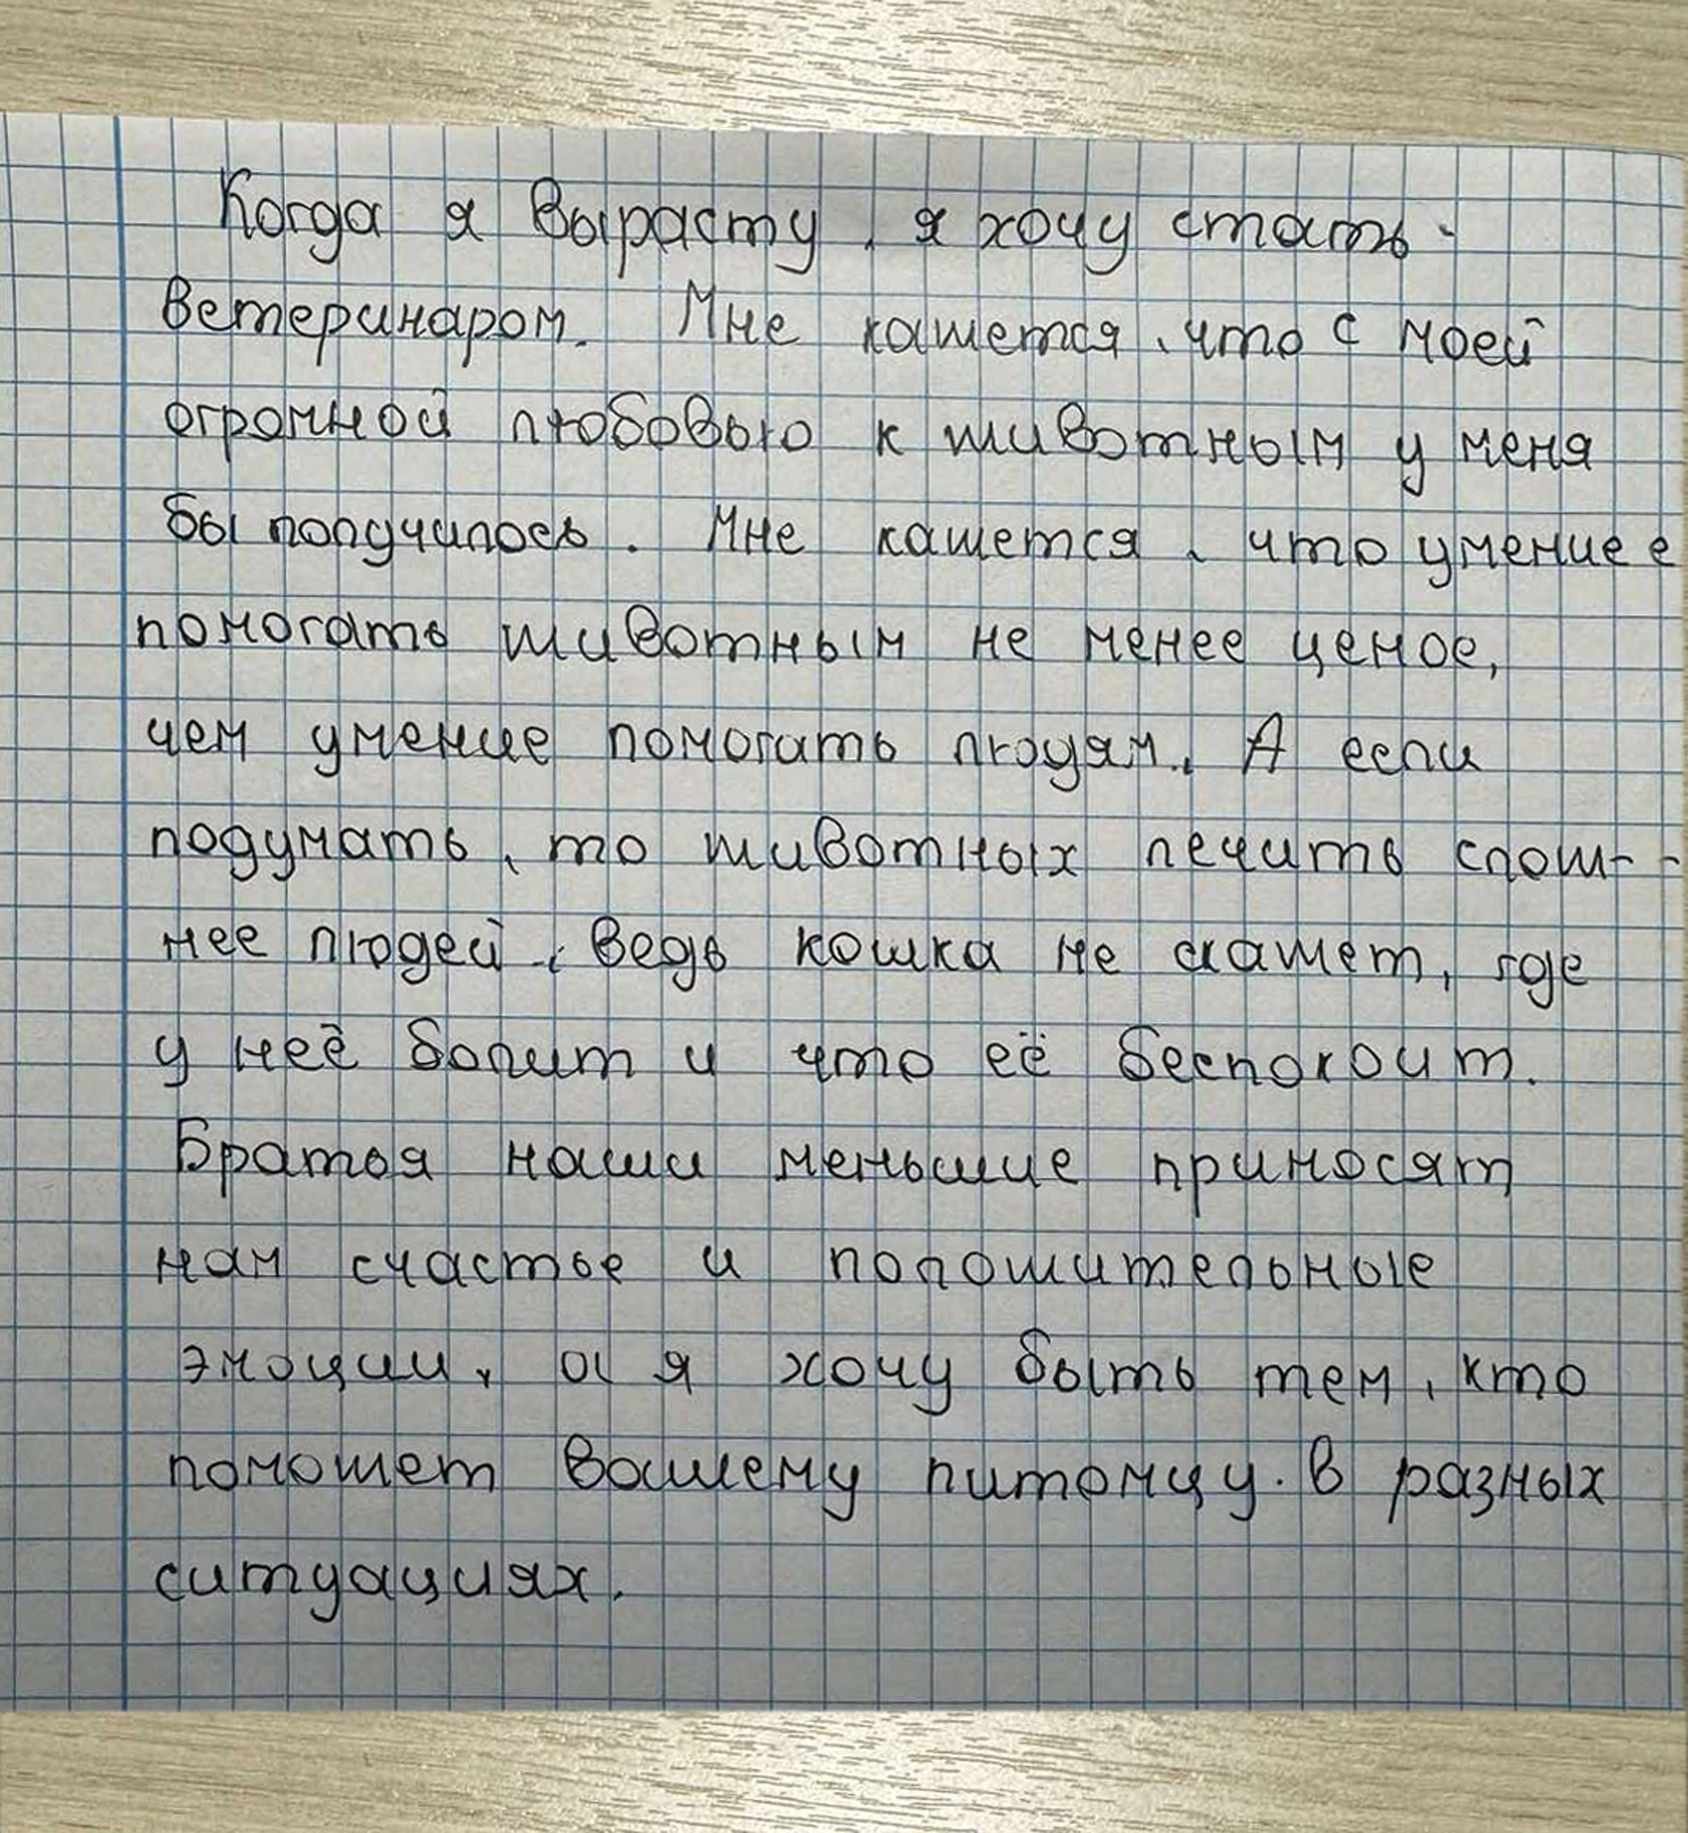 Когда я вырасту, я хочу стать
ветеринаром. Мне кажется, что с моей
огромной любовью к животным у меня
бы получилось. Мне кажется, что умениее
помогать животным не менее ценое,
чем умение помогать людям. А если
подумать, то животных лечить слож-
нее людей, ведь кошка не скажет, где
у неё болит и что её беспокоит.
Братья наши меньшие приносят
нам счастье и положительные
эмоции, а я хочу быть тем, кто
поможет вашему питомцу в разных
ситуациях.